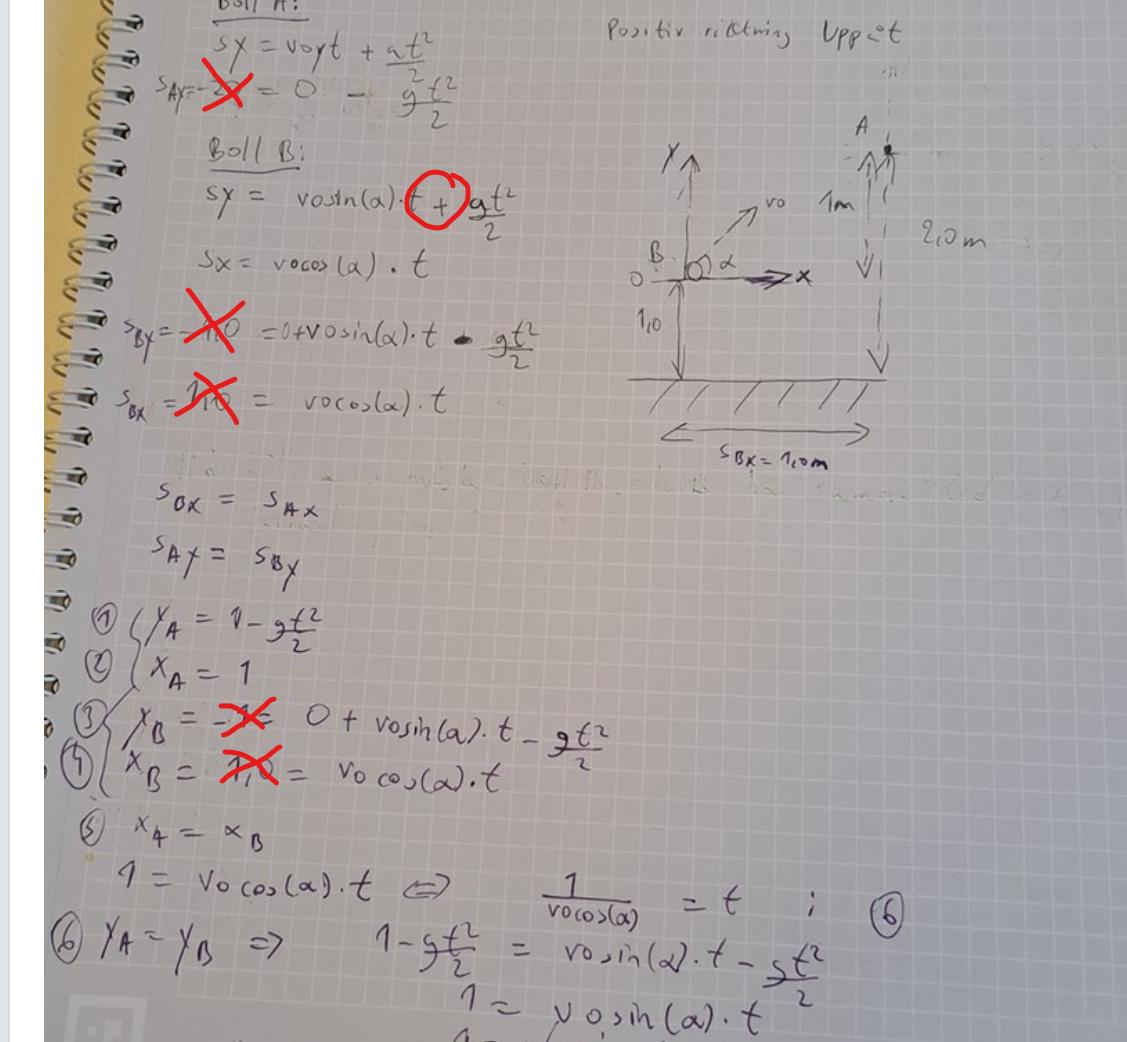 Boll A:
sy = voyt + at²/2
Positiv riktning Uppåt
sAy = = 0 - gt²/2
Boll B:
sy = vosin(α)·t + gt²/2
sx = vocos(α)·t
sBy = -1,0 = 0+vosin(α)·t - gt²/2
sBx = 1,0 = vocos(α)·t
A
y
vo
1m
2,0m
B
α
0
x
1,0
sBx = 1,0m
sBx = sAx
sAy = sBy
① yA = 1 - gt²/2
② xA = 1
③ yB = -1 = 0 + vosin(α)·t - gt²/2
④ xB = 1,0 = vo cos(α)·t
⑤ xA = xB
1 = vo cos(α)·t ⇔ 1/vocos(α) = t ; ⑥
⑥ yA = yB ⇒ 1 - gt²/2 = vosin(α)·t - gt²/2
1 = vosin(α)·t